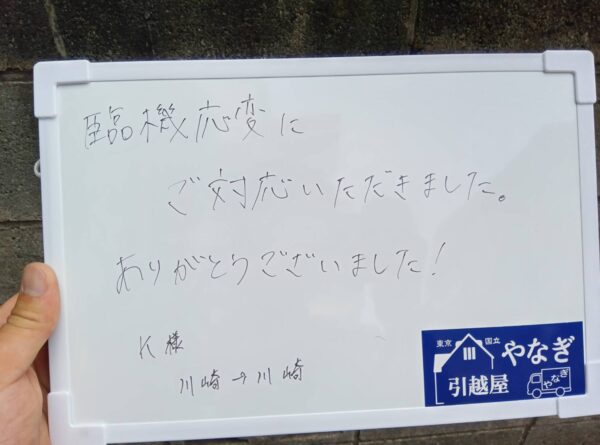 臨機応変に
ご対応いただきました。
ありがとうございました！
K様
川崎→川崎
東京 国立 やなぎ
引越屋 やなぎ